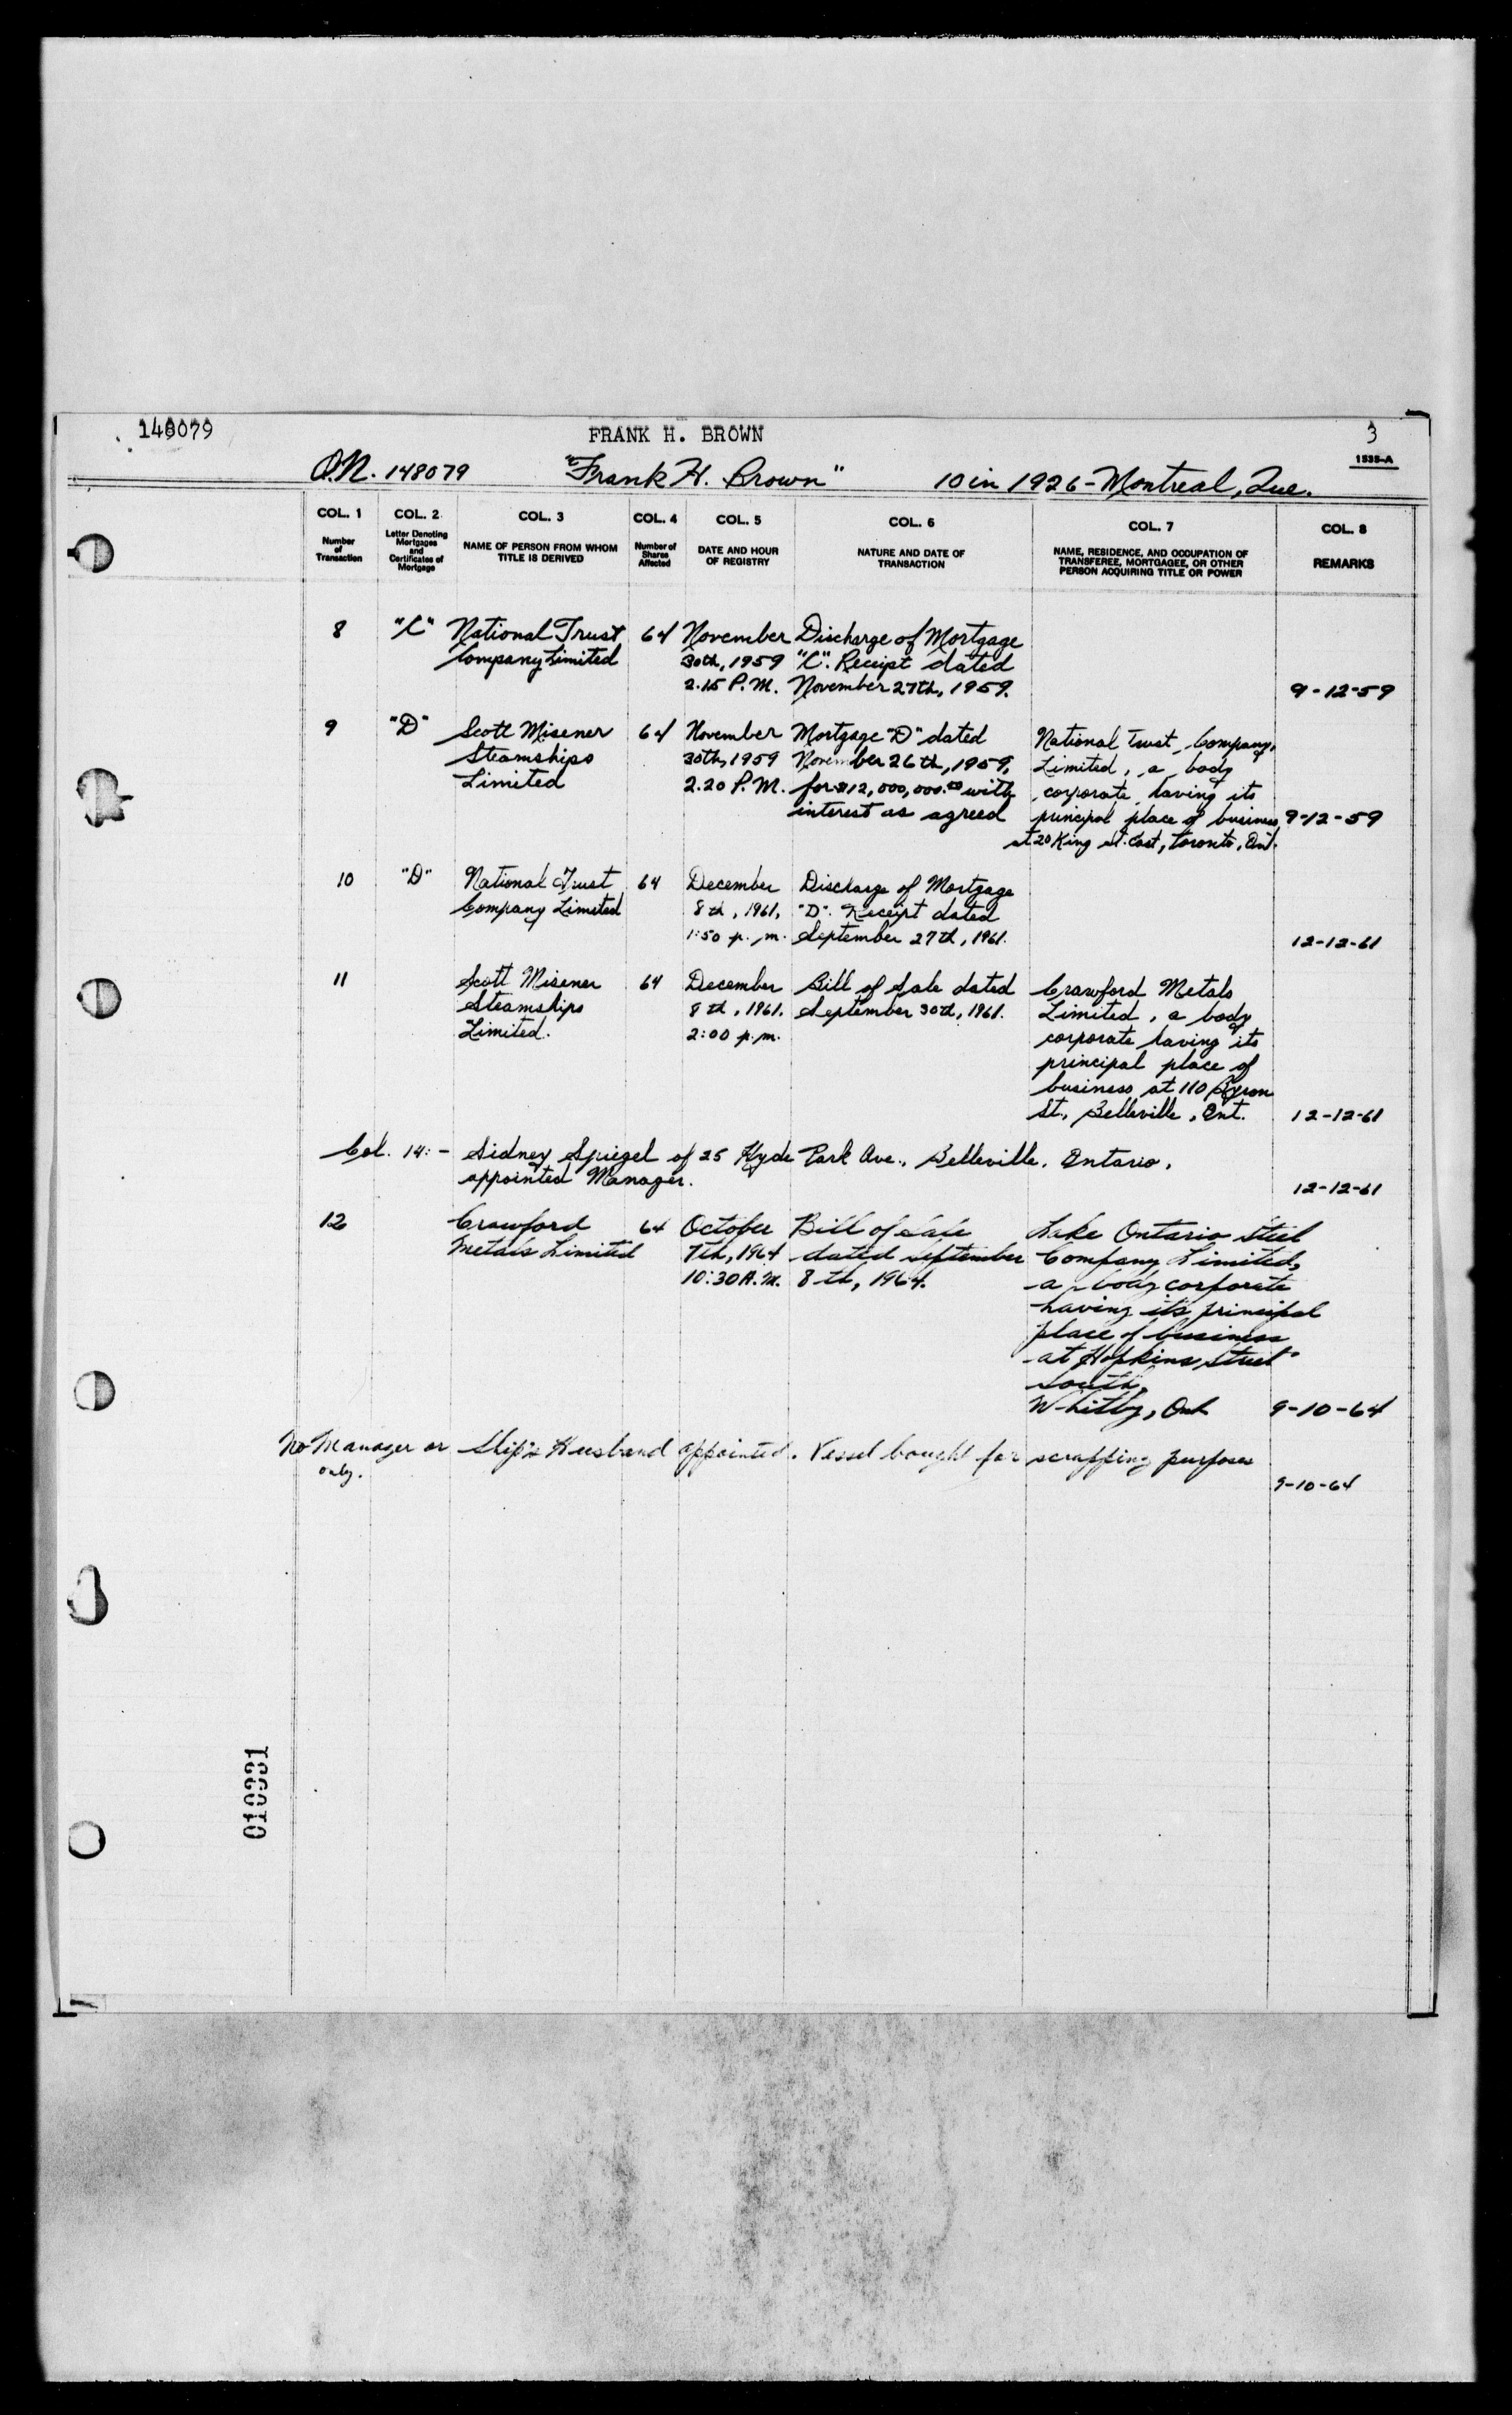 148079
FRANK H. BROWN
3
1535-A
O.N. 148079 "Frank H. Brown" 10 in 1926 - Montreal, Que.
COL. 1 COL. 2 COL. 3 COL. 4 COL. 5 COL. 6 COL. 7 COL. 8
Number of Transaction
Letter Denoting Mortgages and Certificates of Mortgage
NAME OF PERSON FROM WHOM TITLE IS DERIVED
Number of Shares Affected
DATE AND HOUR OF REGISTRY
NATURE AND DATE OF TRANSACTION
NAME, RESIDENCE, AND OCCUPATION OF TRANSFEREE, MORTGAGEE, OR OTHER PERSON ACQUIRING TITLE OR POWER
REMARKS
8 "C" National Trust 64 November Discharge of Mortgage
Company Limited 30th, 1959 "C". Receipt dated
2.15 P.M. November 27th, 1959. 9-12-59
9 "D" Scott Misener 64 November Mortgage "D" dated National Trust Company,
Steamships 30th, 1959 November 26th, 1959, Limited, a body
Limited 2.20 P.M. for $12,000,000.00 with corporate having its
interest as agreed principal place of business 9-12-59
at 20 King St. East, Toronto, Ont.
10 "D" National Trust 64 December Discharge of Mortgage
Company Limited 8th, 1961, "D". Receipt dated
1:50 p.m. September 27th, 1961. 12-12-61
11 Scott Misener 64 December Bill of Sale dated Crawford Metals
Steamships 8th, 1961. September 30th, 1961. Limited, a body
Limited. 2:00 p.m. corporate having its
principal place of
business at 110 Byron
St., Belleville, Ont. 12-12-61
Col. 14:- Sidney Spiegel of 25 Hyde Park Ave., Belleville, Ontario,
appointed Manager. 12-12-61
12 Crawford 64 October Bill of Sale Lake Ontario Steel
Metals Limited 7th, 1964 dated September Company Limited,
10:30 A.M. 8th, 1964. a body corporate
having its principal
place of business
at Hopkins Street
South,
Whitby, Ont 9-10-64
No Manager or Ship's Husband appointed. Vessel bought for scrapping purposes
only. 9-10-64
010331